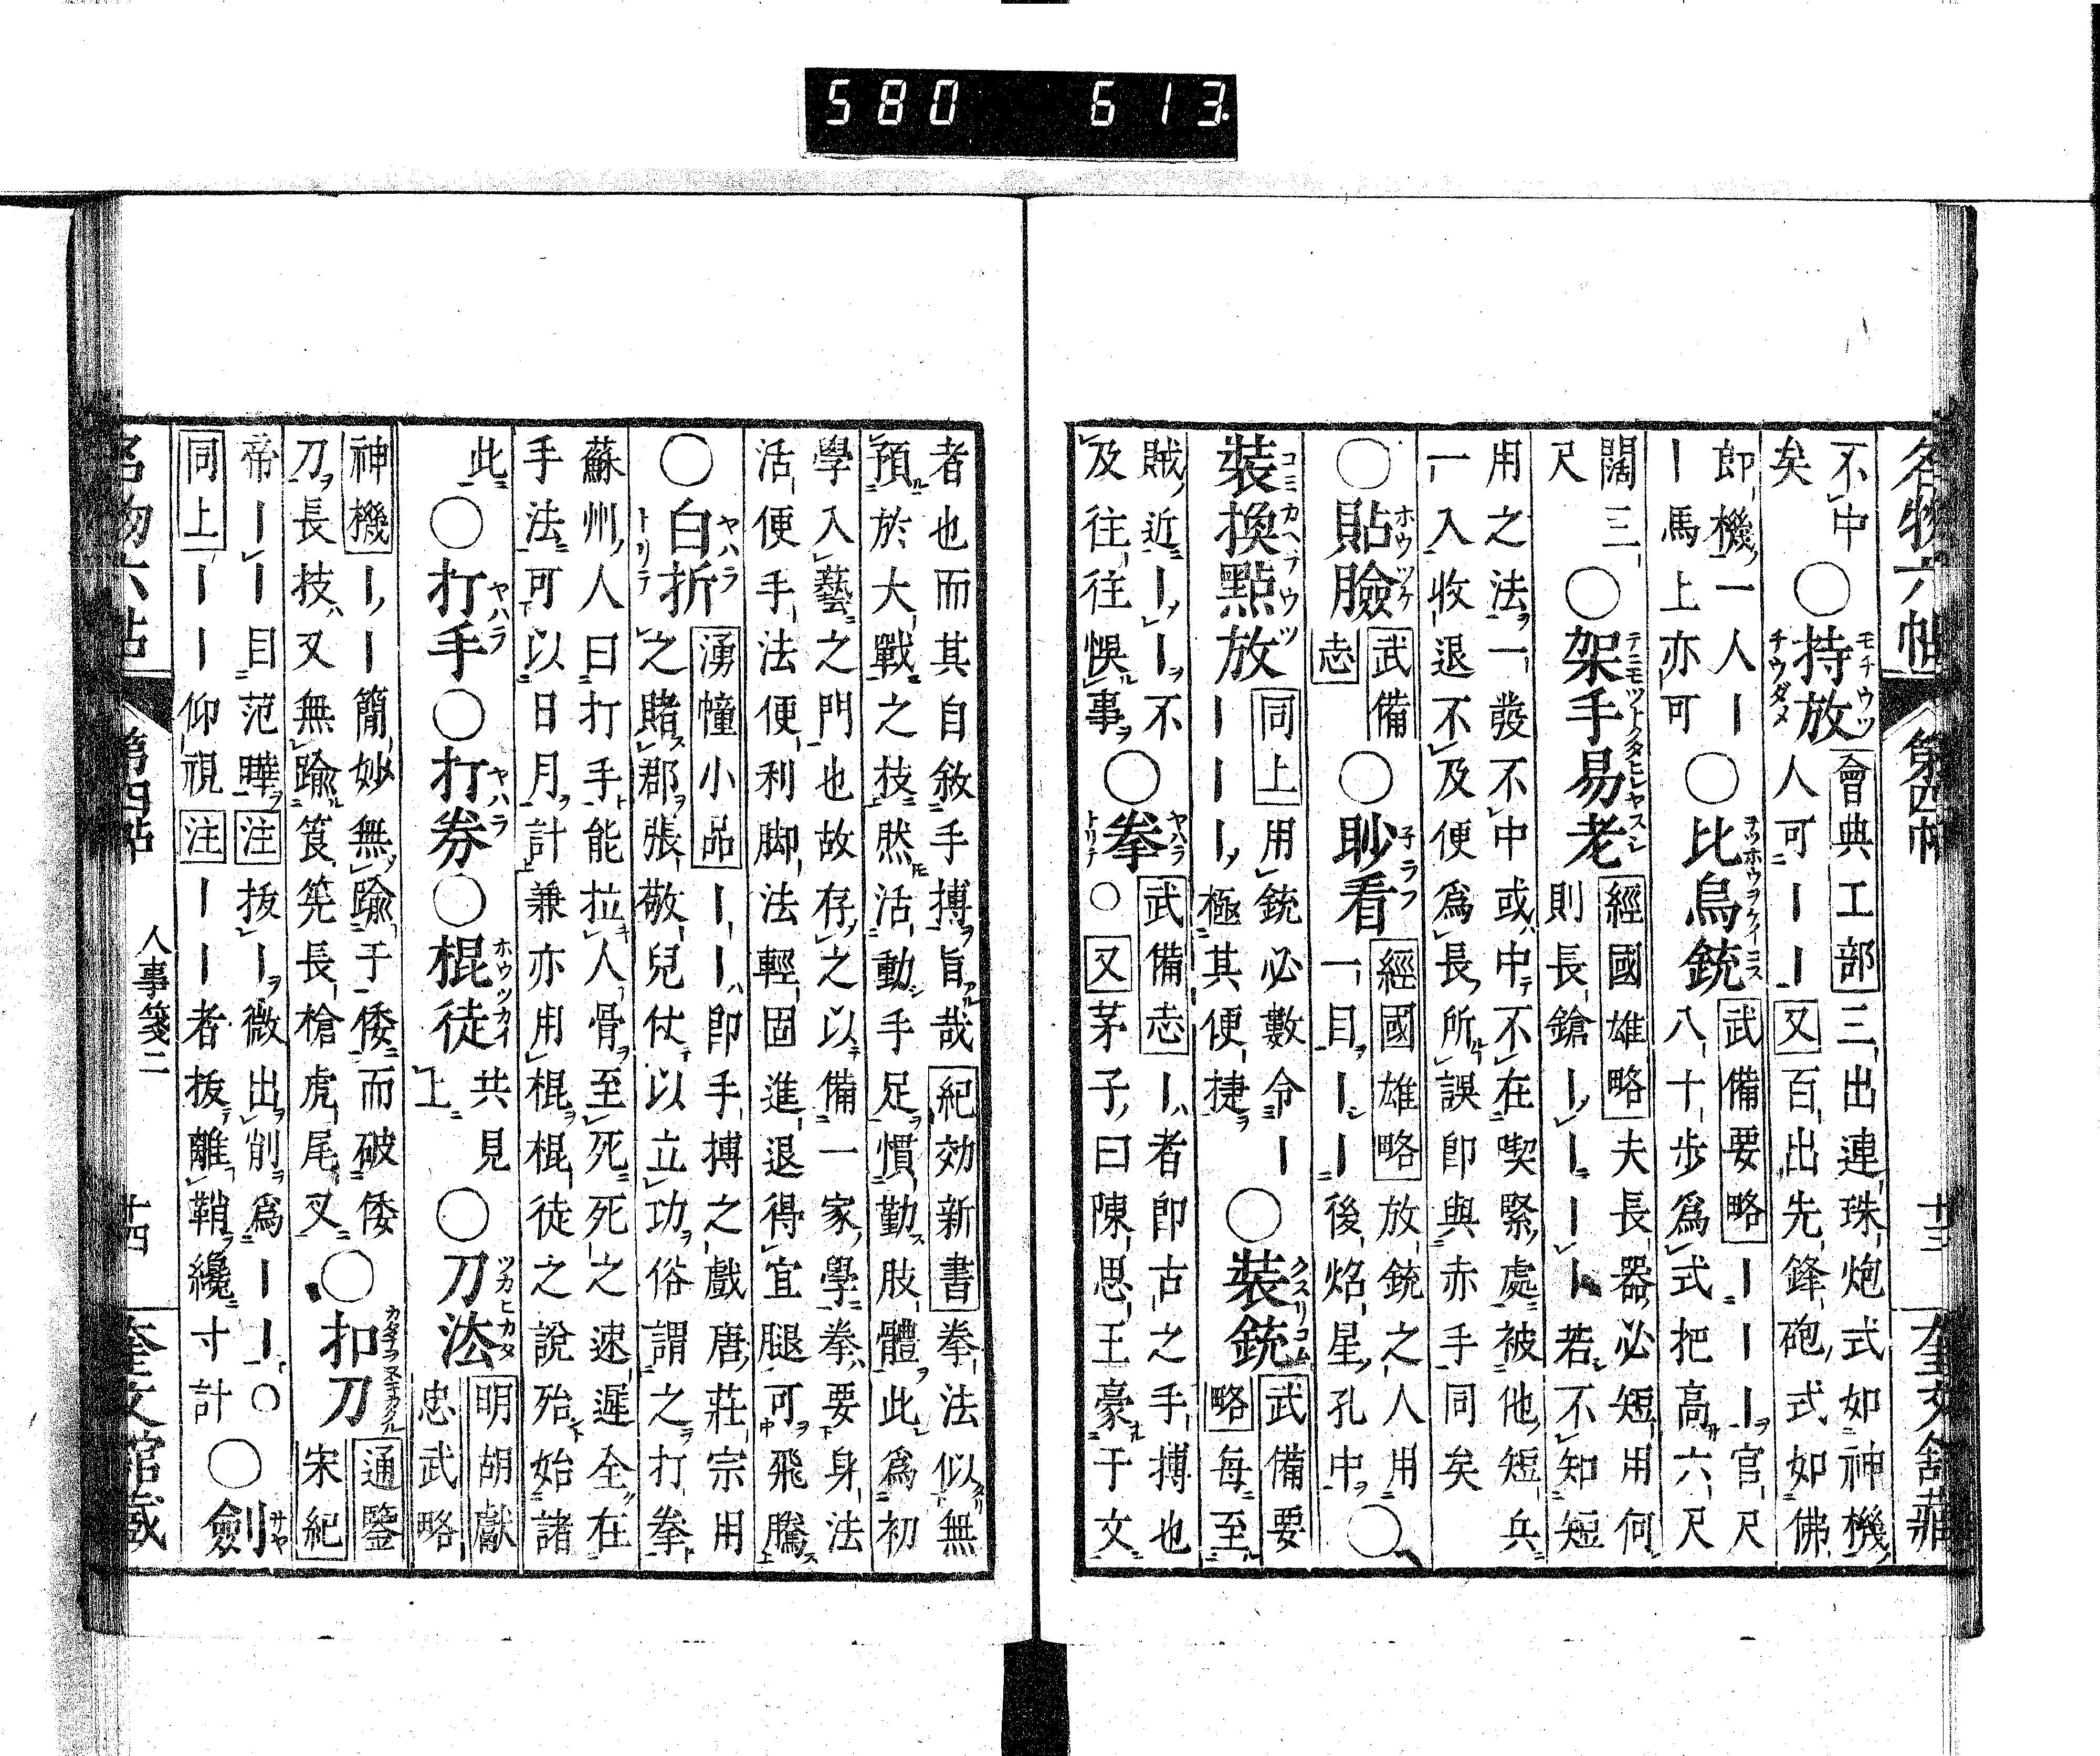 580 613.
名物六帖 第四帖 十三 奎文舘藏
不中
矣
○持放 モチウツ チウダメ
會典工部三出連珠炮式如神機
人可一一又百出先鋒砲式如佛
郎機一人一
一馬上亦可
○比鳥銃
武備要略一一一官尺
八十步爲式把高六尺
闊三
尺
○架手易老
經國雄略夫長器必短用何
則長鎗一一一一若不知短
用之法一發不中或中不在喫緊處被他短兵
一入收退不及便爲長所誤即與赤手同矣
○貼臉 ホウツケ
武備
志
○眇看 子ラフ
經國雄略放銃之人用
一目一一後焰星孔中
○
裝換點放 コミカヘテウツ
同上用銃必數令一
一一一極其便捷
○裝銃 クスリコム
武備要
略每至
賊近一一不
及往往悞事
○拳 ヤハラ トリテ
武備志一者即古之手搏也
○又茅子曰陳思王豪于文
者也而其自敘手搏旨哉紀効新書拳法似無
預於大戰之技然活動手足慣勤肢體此爲初
學入藝之門也故存之以備一家學拳要身法
活便手法便利脚法輕固進退得宜腿可飛騰
○白折 ヤハラ トリテ
湧幢小品一一即手搏之戲唐莊宗用
之賭郡張敬兒仗以立功俗謂之打拳
蘇州人曰打手能拉人骨至死死之速遲全在
手法可以日月計兼亦用棍棍徒之說殆始諸
此
○打手 ヤハラ
○打劵 ヤハラ
○棍徒 ホウツカイ
共見
上
○刀法 ツカヒカタ
明胡獻
忠武略
神機一一簡妙無踰于倭而破倭
刀長技又無踰筤筅長槍虎尾叉
○扣刀
通鑒
宋紀
帝一一目范曄注抜一微出削爲一一○
同上一一一仰視注一一一者抜離鞘纔寸計
○劍 サヤ
名物六帖 第四帖 人事箋二 十四 奎文舘藏